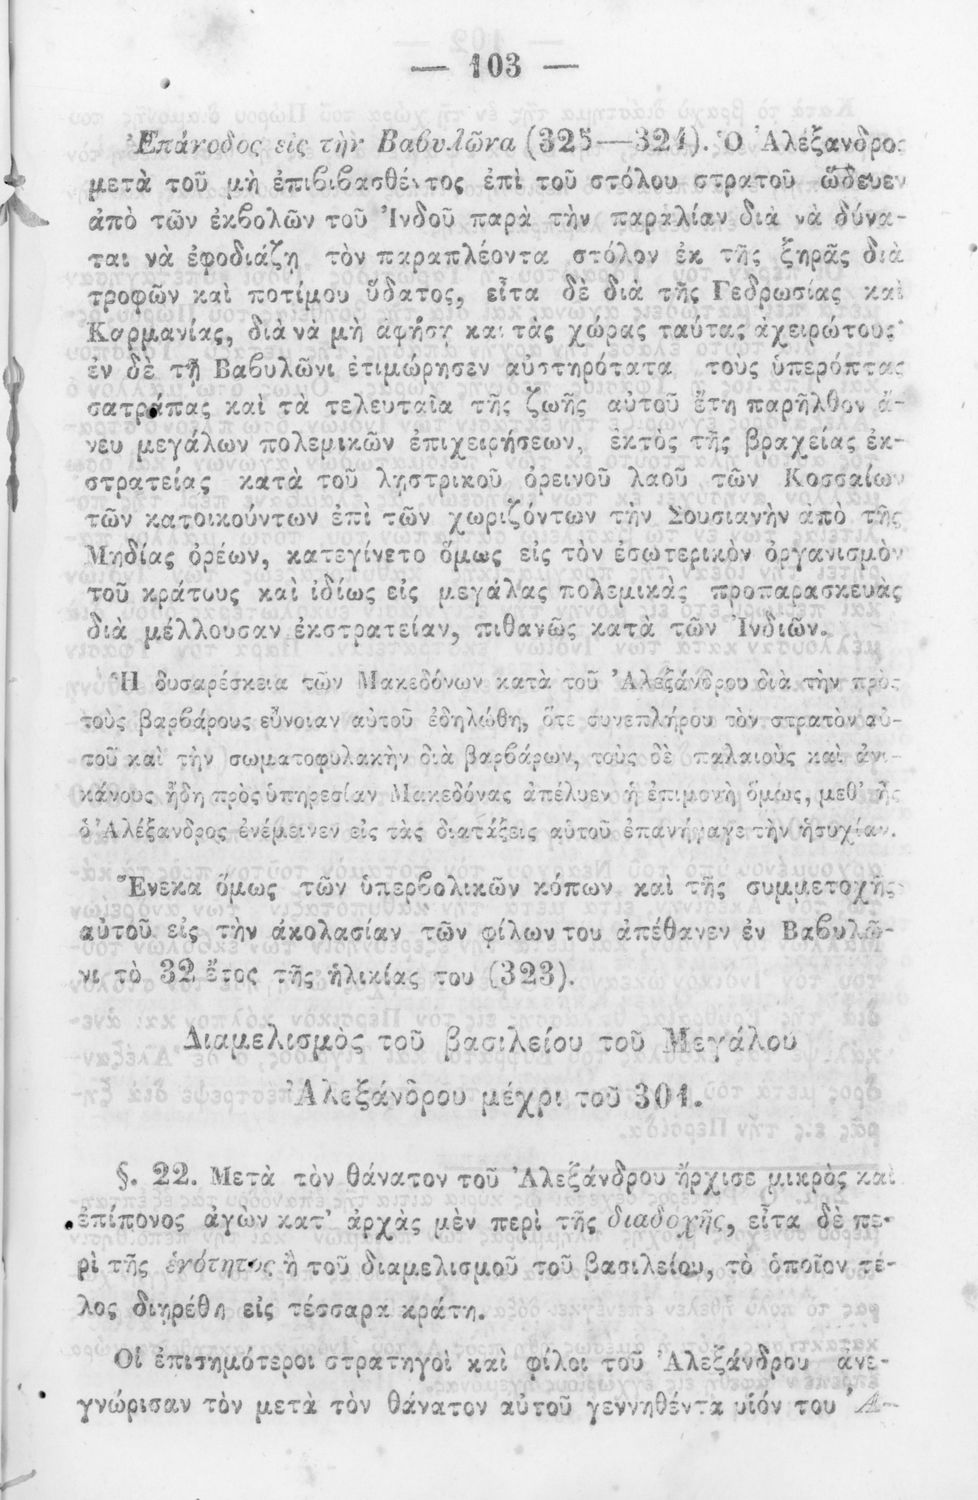 — 103 —
Ἐπάνοδος εἰς τὴν Βαβυλῶνα (325—324). Ὁ Ἀλέξανδρος
μετὰ τοῦ μὴ ἐπιβιβασθέντος ἐπὶ τοῦ στόλου στρατοῦ ὥδευεν
ἀπὸ τῶν ἐκβολῶν τοῦ Ἰνδοῦ παρὰ τὴν παραλίαν διὰ νὰ δύνα-
ται νὰ ἐφοδιάζῃ τὸν παραπλέοντα στόλον ἐκ τῆς ξηρᾶς διὰ
τροφῶν καὶ ποτίμου ὕδατος, εἶτα δὲ διὰ τῆς Γεδρωσίας καὶ
Καρμανίας, διὰ νὰ μὴ ἀφήσῃ καὶ τὰς χώρας ταύτας ἀχειρώτους·
ἐν δὲ τῇ Βαβυλῶνι ἐτιμώρησεν αὐστηρότατα τοὺς ὑπερόπτας
σατράπας καὶ τὰ τελευταῖα τῆς ζωῆς αὐτοῦ ἔτη παρῆλθον ἄ-
νευ μεγάλων πολεμικῶν ἐπιχειρήσεων, ἐκτὸς τῆς βραχείας ἐκ-
στρατείας κατὰ τοῦ λῃστρικοῦ ὀρεινοῦ λαοῦ τῶν Κοσσαίων
τῶν κατοικούντων ἐπὶ τῶν χωριζόντων τὴν Σουσιανὴν ἀπὸ τῆς
Μηδίας ὀρέων, κατεγίνετο ὅμως εἰς τὸν ἐσωτερικὸν ὀργανισμὸν
τοῦ κράτους καὶ ἰδίως εἰς μεγάλας πολεμικὰς προπαρασκευὰς
διὰ μέλλουσαν ἐκστρατείαν, πιθανῶς κατὰ τῶν Ἰνδιῶν.
Ἡ δυσαρέσκεια τῶν Μακεδόνων κατὰ τοῦ Ἀλεξάνδρου διὰ τὴν πρὸς
τοὺς βαρβάρους εὔνοιαν αὐτοῦ ἐδηλώθη, ὅτε συνεπλήρου τὸν στρατὸν αὐ-
τοῦ καὶ τὴν σωματοφυλακὴν διὰ βαρβάρων, τοὺς δὲ παλαιοὺς καὶ ἀνι-
κάνους ἤδη πρὸς ὑπηρεσίαν Μακεδόνας ἀπέλυεν ἡ ἐπιμονὴ ὅμως, μεθ' ἧς
ὁ Ἀλέξανδρος ἐνέμεινεν εἰς τὰς διατάξεις αὐτοῦ ἐπανήγαγε τὴν ἡσυχίαν.
Ἕνεκα ὅμως τῶν ὑπερβολικῶν κόπων καὶ τῆς συμμετοχῆς
αὐτοῦ εἰς τὴν ἀκολασίαν τῶν φίλων του ἀπέθανεν ἐν Βαβυλῶ-
νι τὸ 32 ἔτος τῆς ἡλικίας του (323).
Διαμελισμὸς τοῦ βασιλείου τοῦ Μεγάλου
Ἀλεξάνδρου μέχρι τοῦ 301.
§. 22. Μετὰ τὸν θάνατον τοῦ Ἀλεξάνδρου ἤρχισε μικρὸς καὶ
ἐπίπονος ἀγὼν κατ' ἀρχὰς μὲν περὶ τῆς διαδοχῆς, εἶτα δὲ πε-
ρὶ τῆς ἑνότητος ἢ τοῦ διαμελισμοῦ τοῦ βασιλείου, τὸ ὁποῖον τέ-
λος διῃρέθη εἰς τέσσαρα κράτη.
Οἱ ἐπισημότεροι στρατηγοὶ καὶ φίλοι τοῦ Ἀλεξάνδρου ἀνε-
γνώρισαν τὸν μετὰ τὸν θάνατον αὐτοῦ γεννηθέντα υἱόν του Ἀ-